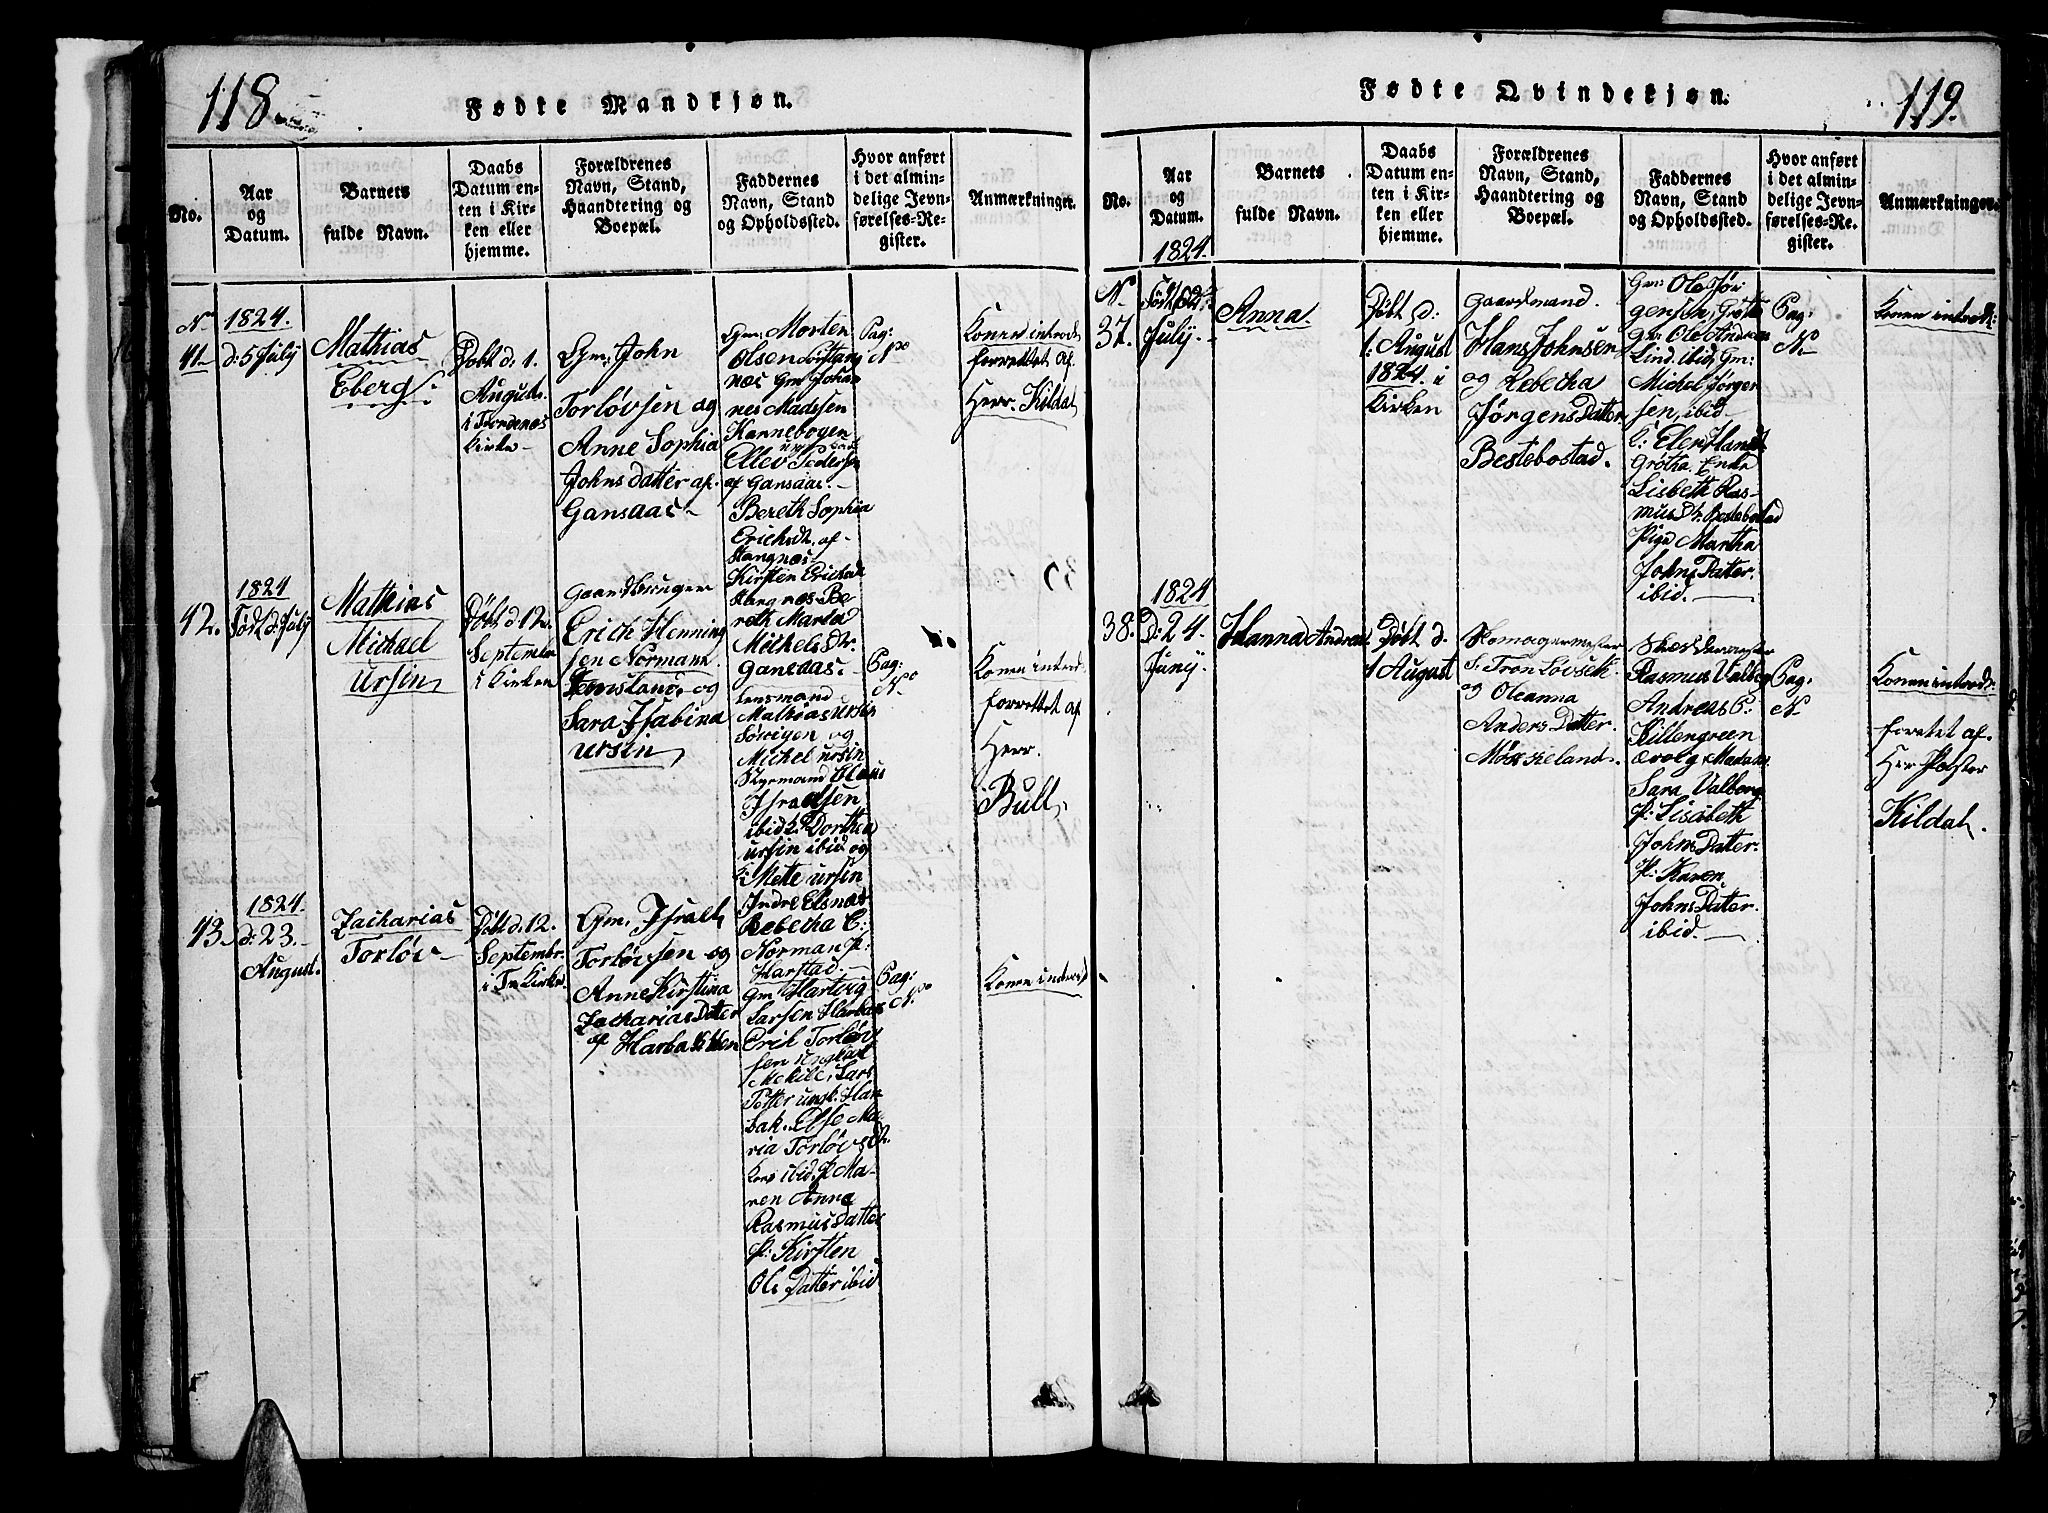 118
Fødte Mandkjøn.
No.
Aar
og
Datum.
Barnets
fulde Navn.
Daabs
Datum en-
ten i Kir-
ken eller
hjemme.
Forældrenes
Navn, Stand,
Haandtering og
Boepæl.
Faddernes
Navn, Stand
og Opholdssted.
Hvor anført
i det almin-
delige Jevn-
førelses-Re-
gister.
Anmærkninger.
No
41.
1824.
d: 5 July
Mathias
Eberg
Døbt d: 1.
August.
i Trondenæs
Kirke
Gm: John
Torløvsen og
Anne Sophia
Johns datter af
Gansaas
Gm: Morten
Olsen Stang
næs Gm Johan
nes Madssen
Kannebogen
Ellev Pedersen
af Gansaas.
Bereth Sophia
Erichsdt. af
Stangnæs
Kirsten Erichsd
Stangnæs Be
reth Marta
Michels Dr.
Gansaas
Pag:
No
Konen introd:
forrettet af
Herr. Kildal
42.
1824
Født d: July
Mathias
Michael
Ursin
Døbt d. 12.
September
i Kirken
Gaardbruger
Erich Henning
sen Normann
og
Sara Isabina
Ursin
Lensmand
Mathias Ursin
Sørvigen og
Michel Ursin
Styrmand
Israelsen
ibid. Dorthea
Ursin ibid og
Mette Ursin
Indre Elsnæs
Rebecha C:
Norman P:
Harstad.
Pag:
No
Konen introd:
forrettet af
Herr.
Bull
43.
1824.
d: 23.
August.
Zacharias
Torløv
Døbt d. 12.
Septembr.
i Tr. Kirke
Gm. Israel
Torløvsen og
Anne Kirstina
Zacharias Datter
af Harbakken
Gm Hartvig
Larsen Harbak
Erik Torløv
sen ungkarl
Mekile, Lars
Petter ungk. Har
bak. Else Ma
ria Torløvsdt.
Kone ibid P. Ma-
ren Anna
Rasmus Datter
P: Kirsten
Ols Datter ibid
Pag:
No
Konen introd
119.
Fødte Qvindekjøn.
No.
Aar
og
Datum.
Barnets
fulde Navn.
Daabs
Datum en-
ten i Kir-
ken eller
hjemme.
Forældrenes
Navn, Stand,
Haandtering og
Boepæl.
Faddernes
Navn, Stand
og Opholdssted.
Hvor anført
i det almin-
delige Jevn-
førelses-Re-
gister.
Anmærkninger.
1824.
N
37.
Født d:
July.
Anna
Døbt d:
1: August
1824. i
Kirken
Gaardmand.
Hans Johnsen
og Rebecha
Jørgens Datter
Bestebostad.
Gm: Ole Jør
gensen, Grøtta
Gm: Ole Andreas
Lind. ibid, Gm:
Michel Jørgen
sen, ibid
K: Elen Hansdt
Grøtha. Enke
Lisbeth Ras-
mus Dr. Bestebostad
Pige Martha
Johns Datter.
ibid.
Pag:
No
Konen introd:
38.
1824
D: 24.
Juny.
Hanna Andrea
Døbt d.
1 August
Skomagermester
S: Tron Løvseth
og Oleanna
Anders Datter.
Møkkeland.
Skrædermester
Rasmus Valberg
Andreas C:
Killengreen
Madam
Sara Valberg
P: Lisabeth
Johns Datter.
P: Karen
Johns Datter
ibid.
Pag:
No
Konen introd:
forettet af
Herr Præster
Kildal